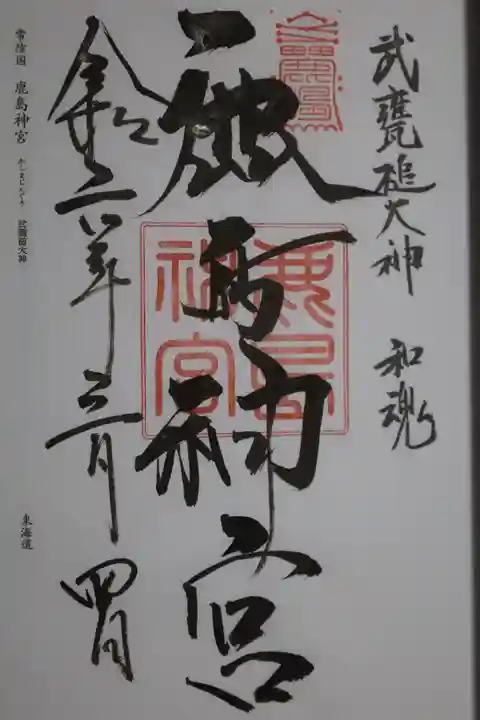 武甕槌大神 和魂
鹿島
鹿島神宮
鹿島神宮
令和六年三月四日
常陸国 鹿島神宮 かしまじんぐう 武甕槌大神
東海道